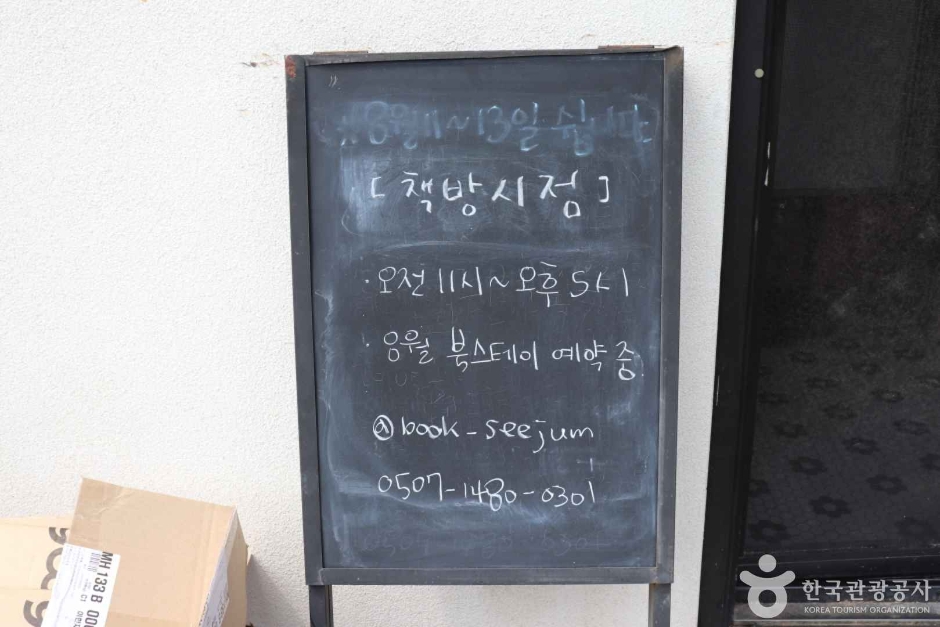 8월 11~13일 쉽니다
[책방시점]
· 오전 11시~오후 5시
· 8월 북스테이 예약 중.
@book_seejum
0507-1480-0301
MH 133 B 000
한국관광공사
KOREA TOURISM ORGANIZATION